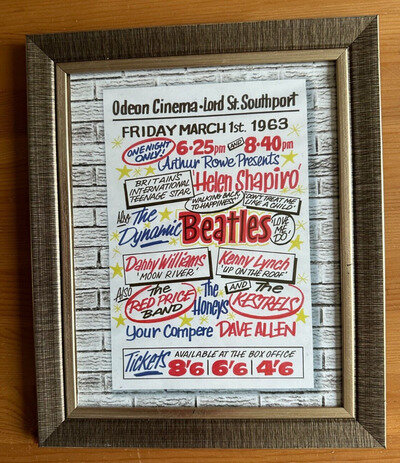 Odeon Cinema - Lord St. Southport
FRIDAY MARCH 1st. 1963
ONE NIGHT ONLY! 6·25pm AND 8·40pm
Arthur Rowe Presents
BRITAIN'S INTERNATIONAL TEENAGE STAR Helen Shapiro
WALKING BACK TO HAPPINESS DON'T TREAT ME LIKE A CHILD
Also The Dynamic Beatles LOVE ME DO
Danny Williams Kenny Lynch
'MOON RIVER' 'UP ON THE ROOF'
ALSO The RED PRICE BAND The Honeys AND The KESTRELS
Your Compere DAVE ALLEN
Tickets AVAILABLE AT THE BOX OFFICE
8'6 | 6'6 | 4'6